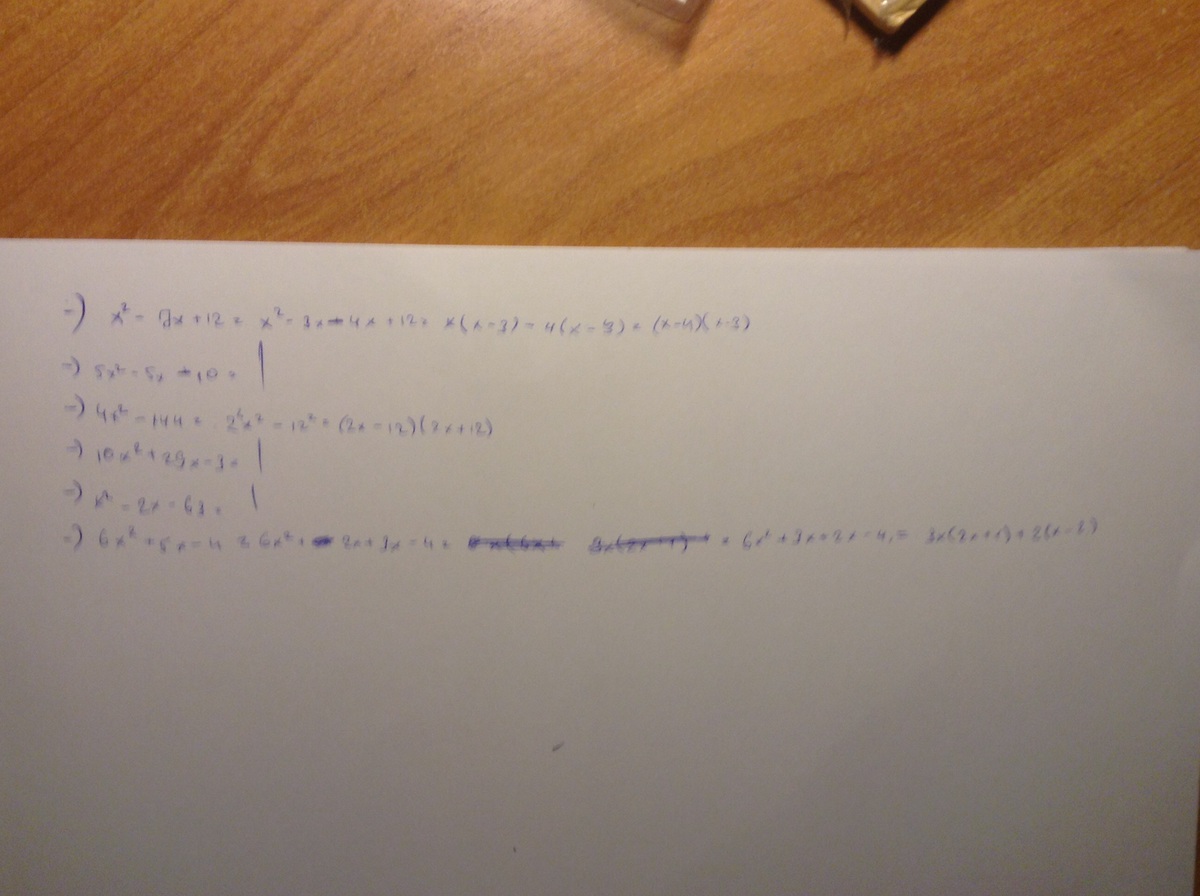 -) x² - 7x + 12 = x² - 3x - 4x + 12 = x(x-3) - 4(x-3) = (x-4)(x-3)
-) 5x² - 5x - 10 = |
-) 4x² - 144 = 2²x² - 12² = (2x - 12)(2x + 12)
-) 10x² + 29x - 3 = |
-) x² - 2x - 63 = |
-) 6x² + 5x - 4 = 6x² + 2x + 3x - 4 = = 6x² + 3x + 2x - 4 = 3x(2x+1) + 2(x-2)